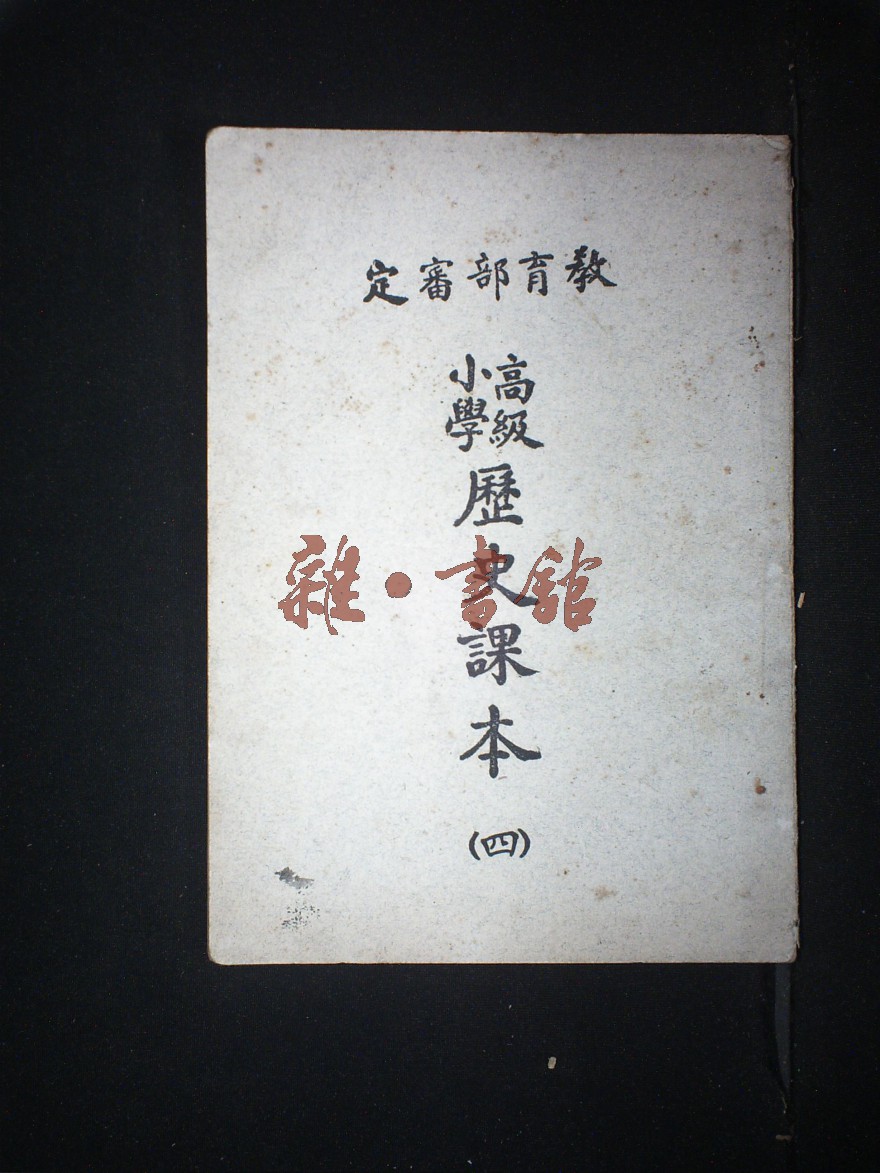 教育部審定
高級
小學
歷史課本
(四)
雜·書館